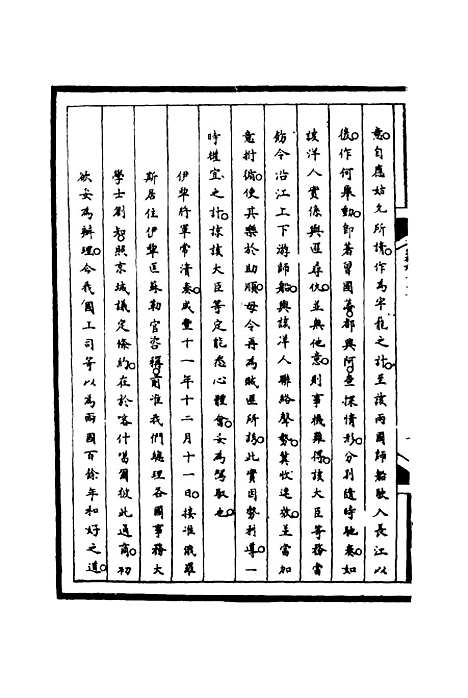 意自應姑允所請作為牢籠之計至該兩國師船駛入長江以
後作何舉動即著曾國荃都興阿查探情形分別隨時馳奏如
該洋人實係與匪尋仇並無他意則事機難得該大臣等務當
飭令沿江上下游師船與該洋人聯絡聲勢冀收速效並當加
意拊循使其樂於助順毋令再為賊匪所誘此實因勢利導一
時權宜之計諒該大臣等定能悉心體會妥為駕馭也
伊犂將軍常清奏咸豐十一年十二月十一日接准俄羅
斯居住伊犂匡蘇勒官咨稱前准我們總理各國事務大
學士劄知照京城議定條約在於喀什噶爾彼此通商初
欲妥為辦理今我國工司等以為兩國百餘年和好之道